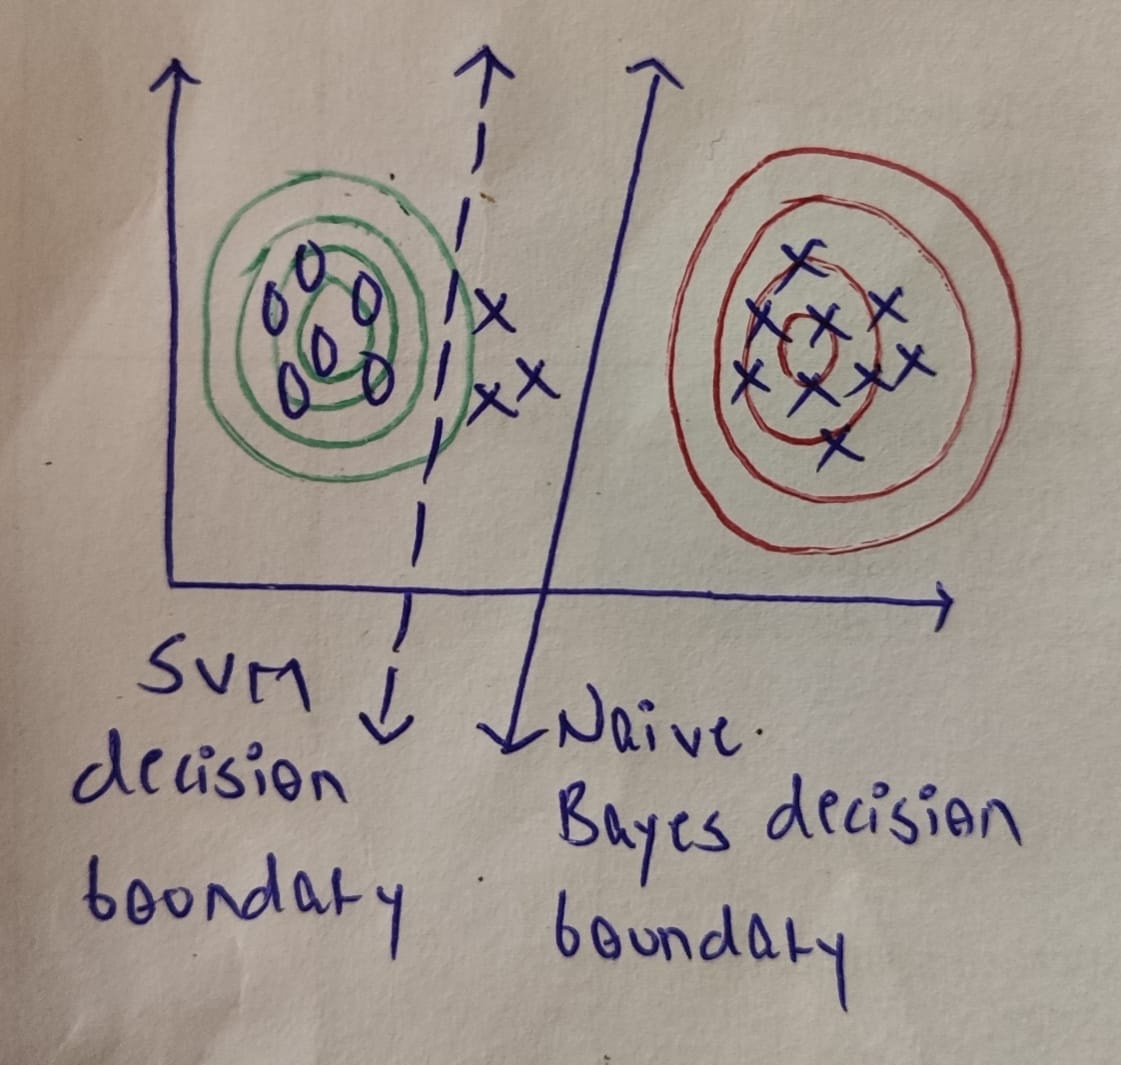 SVM
decision
boundary
Naive
Bayes decision
boundary